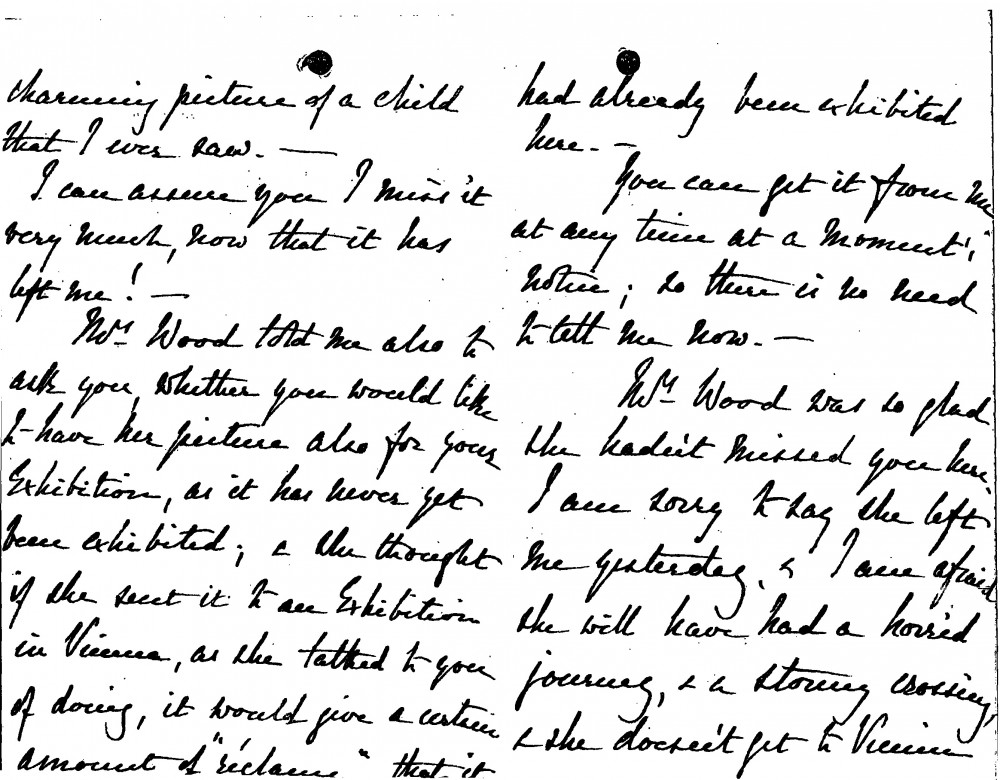 charming picture of a child
that I ever saw. —
I can assure you I miss it
very much, now that it has
left me! —
Mrs. Wood told me also to
ask you, whether you would like
to have her picture also for your
Exhibition, as it has never yet
been exhibited; & she thought
if she sent it to an Exhibition
in Vienna, as she talked to you
of doing, it would give a certain
amount of "réclame" that it
had already been exhibited
here. —
You can get it from me
at any time at a moment's
notice; so there is no need
to tell me now. —
Mrs. Wood was so glad
she hadn't missed you here.
I am sorry to say she left
me yesterday, & I am afraid
she will have had a horrid
journey, & a stormy crossing,
& she doesn't get to Vienna